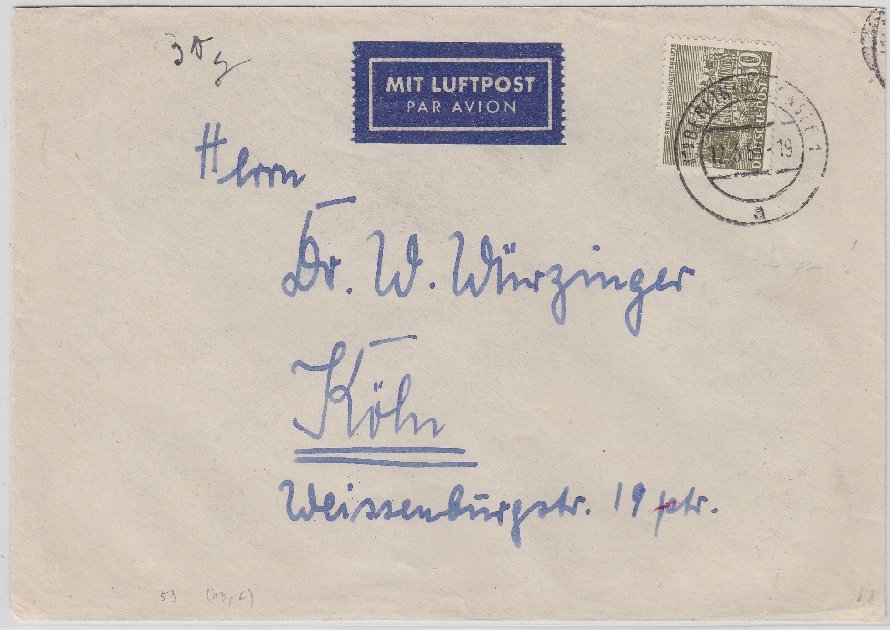 MIT LUFTPOST
PAR AVION
DEUTSCHE POST
Herrn
Dr. W. Würzinger
Köln
Weissenburgstr. 19 ptr.
a
53